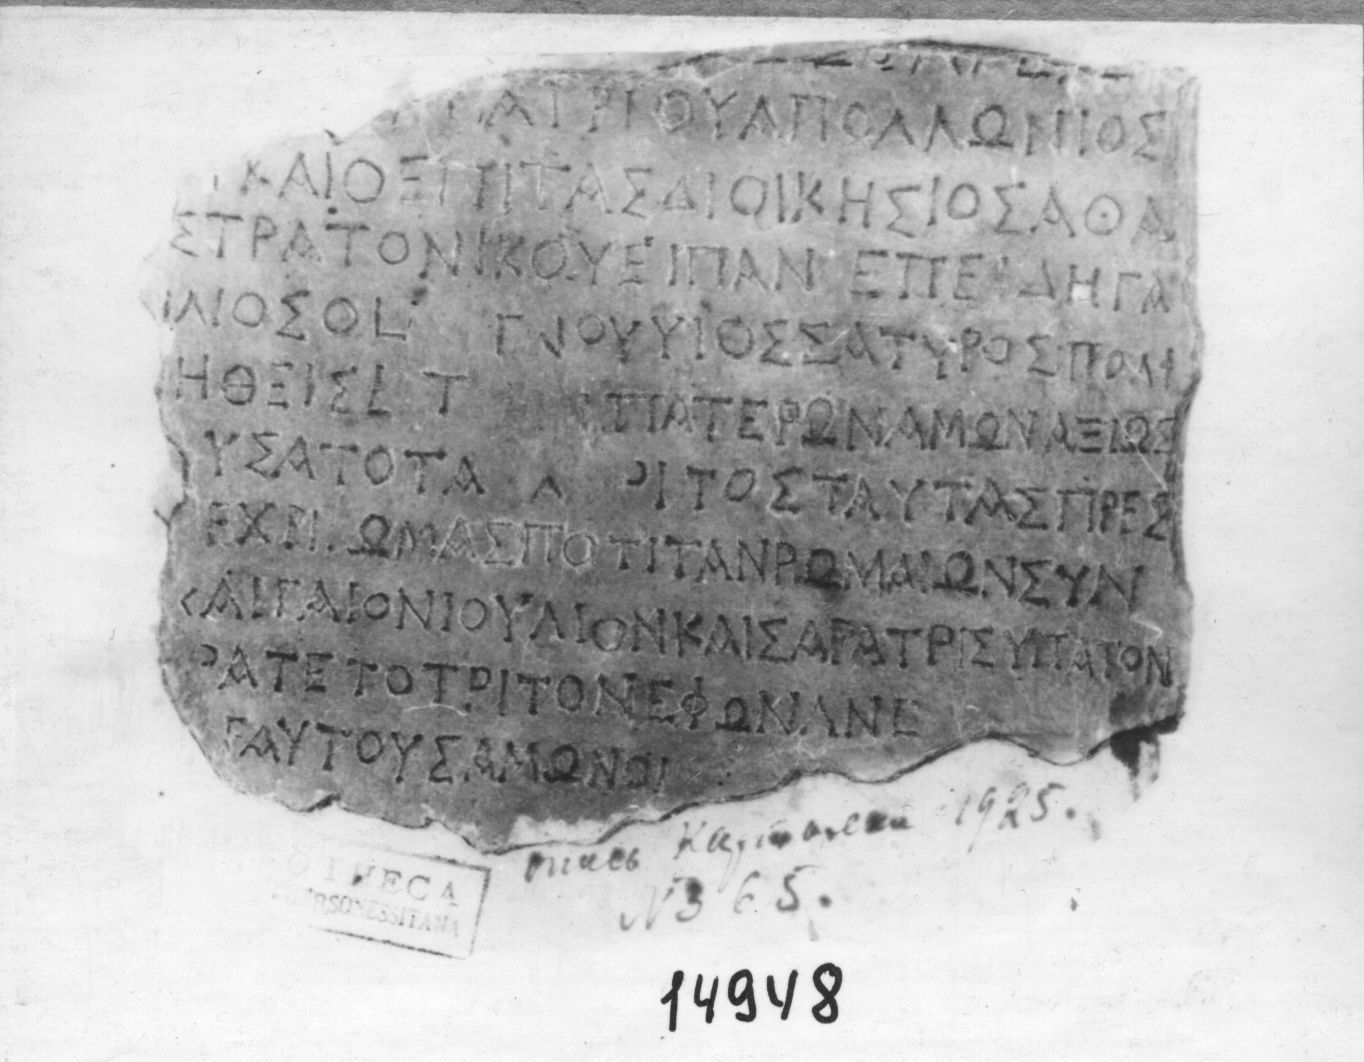 ΑΤΡΙΟΥΑΠΟΛΛΩΝΙΟΣ
ΚΑΙΟΕΠΙΤΑΣΔΙΟΙΚΗΣΙΟΣΑΘΑ
ΣΤΡΑΤΟΝΙΚΟΥΕΙΠΑΝ ΕΠΕΙΔΗΓΑ
ΛΙΟΣΟ ΟΥΥΙΟΣΣΑΤΥΡΟΣΠΟΛΙ
ΗΘΕΙΣ Τ ΠΑΤΕΡΩΝΑΜΩΝΑΞΙΩΣ
ΥΣΑΤΟΤΑ ΡΙΤΟΣΤΑΥΤΑΣΠΡΕΣ
ΩΜΑΣΠΟΤΙΤΑΝΡΩΜΑΙΩΝΣΥΝ
ΚΑΙΓΑΙΟΝΙΟΥΛΙΟΝΚΑΙΣΑΡΑΤΡΙΣΥΠΑΤΟΝ
ΡΑΤΕΤΟΤΡΙΤΟΝΕΦΩΝΑΝΕ
ΑΥΤΟΥΣΑΜΩΝ
1925.
N 365.
OTHECA
CHERSONESSITANA
14948